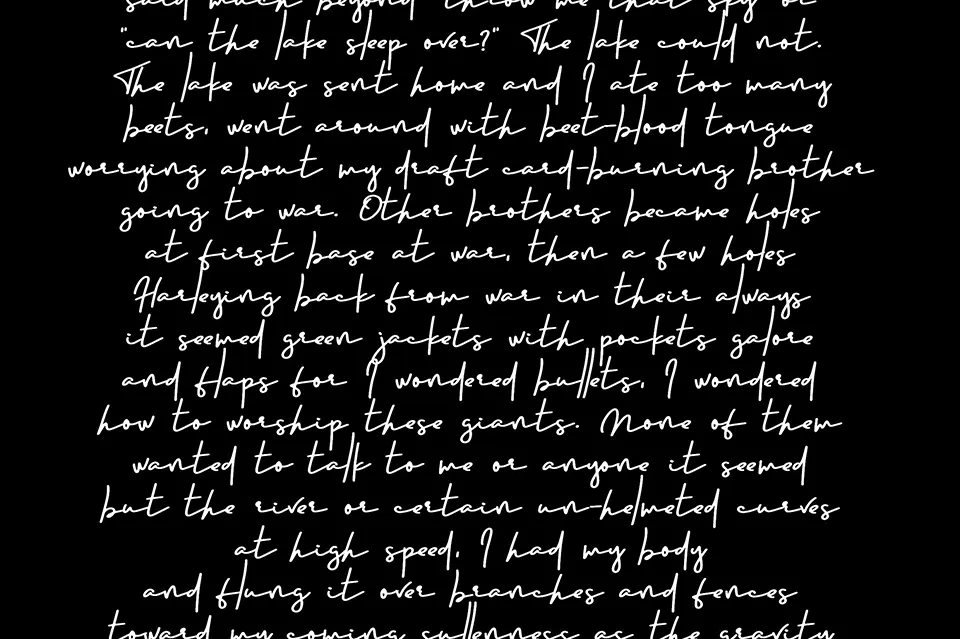 said much beyond "throw me that spy" or
"can the lake sleep over?" The lake could not.
The lake was sent home and I ate too many
beets, went around with beet-blood tongue
worrying about my draft card-burning brother
going to war. Other brothers became holes
at first base at war, then a few holes
Harleying back from war in their always
it seemed green jackets with pockets galore
and flaps for I wondered bullets, I wondered
how to worship these giants. None of them
wanted to talk to me or anyone it seemed
but the river or certain un-helmeted curves
at high speed, I had my body
and flung it over branches and fences
toward my coming sullenness as the gravity